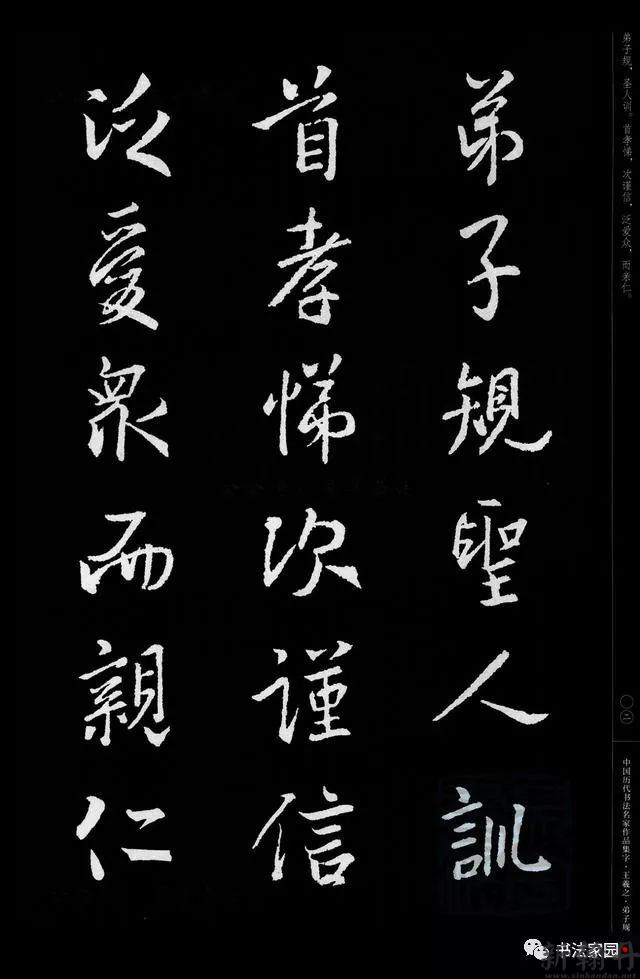 弟子規聖人訓
首孝悌次謹信
泛愛衆而親仁
弟子规，圣人训。首孝悌，次谨信。泛爱众，而亲仁。
〇二
中国历代书法名家作品集字·王羲之·弟子规
书法家园
新翰丹
www.xinhandan.net